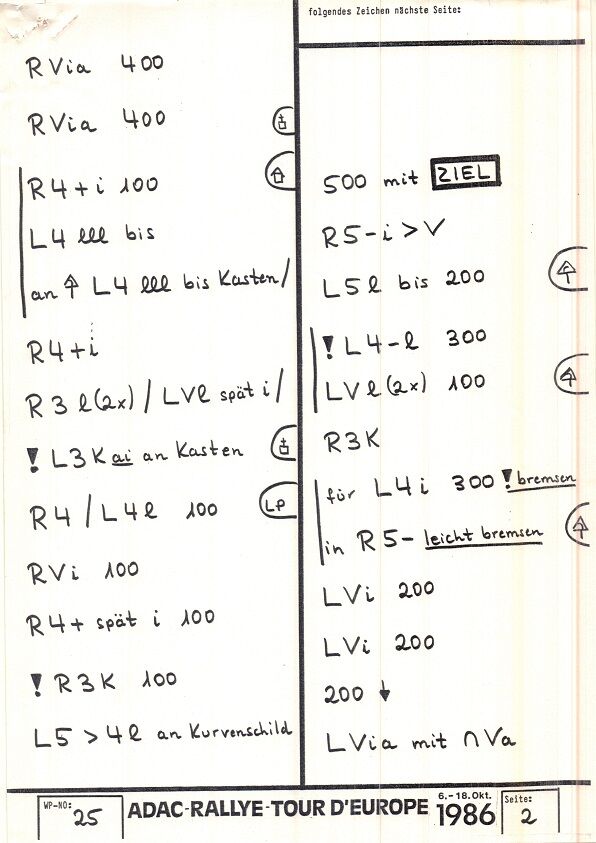 folgendes Zeichen nächste Seite:
R Via 400
R Via 400
R4+i 100
L4 lll bis
an ↑ L4 lll bis Kasten/
R4+i
R3 l(2x) / LVl spät i/
! L3K ai an Kasten
R4 / L4l 100 LP
RVi 100
R4+ spät i 100
! R3K 100
L5 > 4l an Kurvenschild
500 mit ZIEL
R5-i > V
L5l bis 200
! L4-l 300
LVl(2x) 100
R3K
für L4i 300 ! bremsen
in R5- leicht bremsen
LVi 200
LVi 200
200 ↓
LVia mit ∩Va
WP-NO: 25
ADAC-RALLYE-TOUR D'EUROPE 6.-18.Okt. 1986
Seite: 2